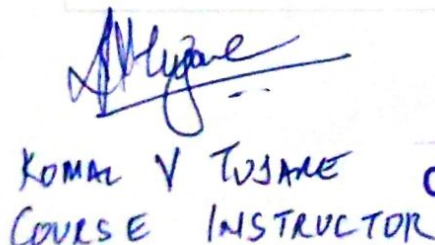 KOMAL V TUJARE
COURSE INSTRUCTOR